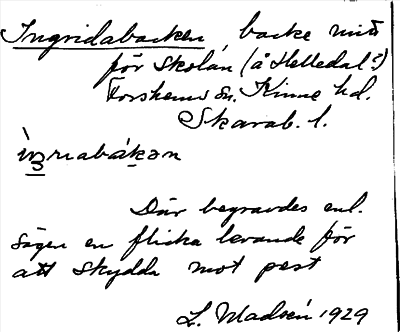 Ingridabacken, backe mitt
för skolan (å Helledal?)
Forshems sn. Kinne hd.
Skarab. l.
ìŋriabákən
Där begravdes enl.
sägen en flicka levande för
att skydda mot pest
L. Madsén 1929